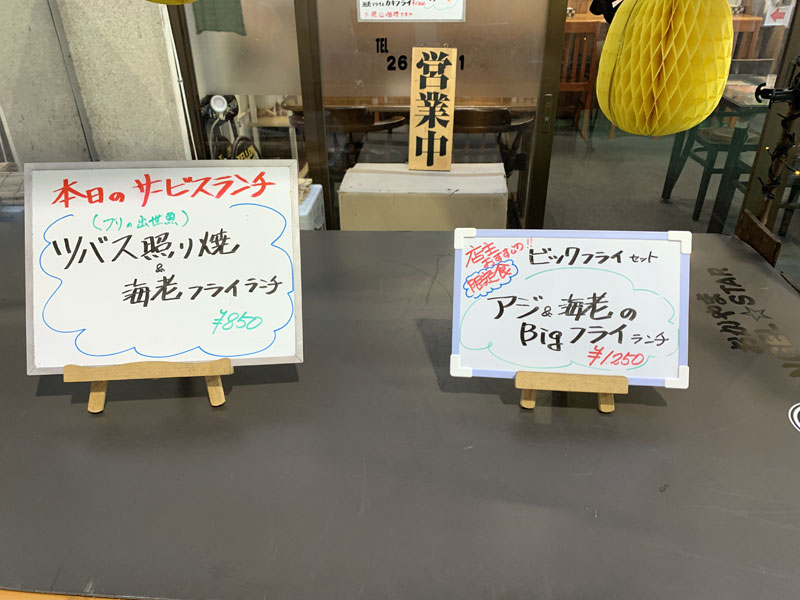 TEL
営業中
本日のサービスランチ
(ブリの出世魚)
ツバス照り焼
&
海老フライランチ
¥850
店主
おすすめ!!
限定食
ビックフライセット
アジ&海老の
Bigフライランチ
¥1.250